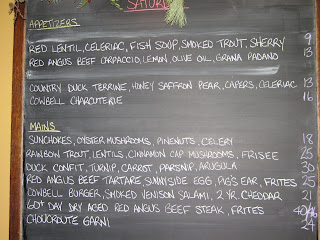 SATUR
APPETIZERS
RED LENTIL, CELERIAC, FISH SOUP, SMOKED TROUT, SHERRY 9
RED ANGUS BEEF CARPACCIO, LEMON, OLIVE OIL, GRANA PADANO 13
COUNTRY DUCK TERRINE, HONEY SAFFRON PEAR, CAPERS, CELERIAC 13
COWBELL CHARCUTERIE 16
MAINS
SUNCHOKES, OYSTER MUSHROOMS, PINENUTS, CELERY 18
RAINBOW TROUT, LENTILS, CINNAMON CAP MUSHROOMS, FRISEE 25
DUCK CONFIT, TURNIP, CARROT, PARSNIP, ARUGULA 30
RED ANGUS BEEF TARTARE, SUNNYSIDE EGG, PIG'S EAR, FRITES 25
COWBELL BURGER, SMOKED VENISON SALAMI, 2 YR. CHEDDAR 21
60+ DAY DRY AGED RED ANGUS BEEF STEAK, FRITES
CHOUCROUTE GARNI 24